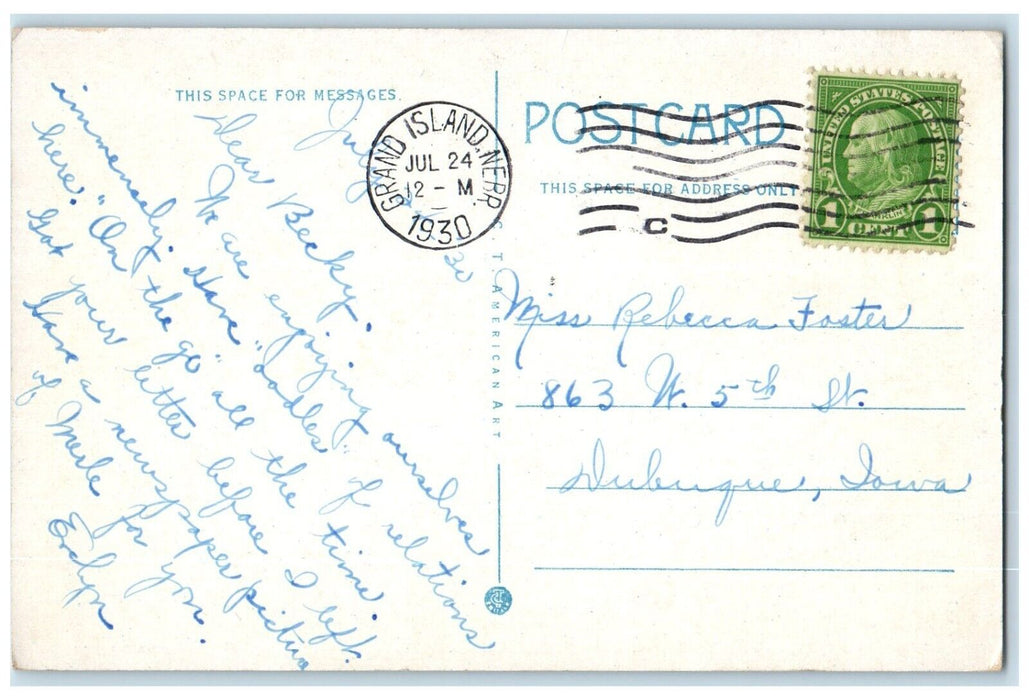 THIS SPACE FOR MESSAGES.
July
30
Dear Becky.
We are enjoying ourselves
immensely. Have "oodles" of relations
here. "On the go" all the time.
Got your letter before I left.
Have a newspaper picture
of Merle for you.
Evelyn
GRAND ISLAND, NEBR.
JUL 24
12 - M
1930
C
C. T. AMERICAN ART
POSTCARD
THIS SPACE FOR ADDRESS ONLY
UNITED STATES POSTAGE
FRANKLIN
1 CENT 1
Miss Rebecca Foster
863 W. 5th St.
Dubuque, Iowa